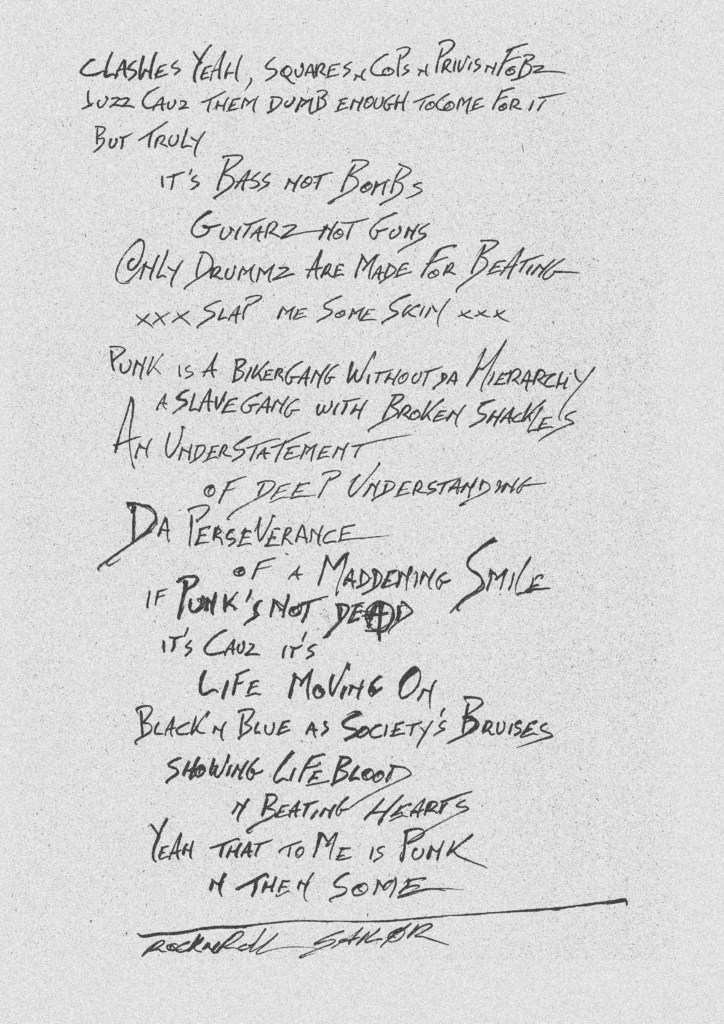 CLASHES YEAH, SQUARES N COPS N PRIVIS N FOBZ
JUZZ CAUZ THEM DUMB ENOUGH TO COME FOR IT
BUT TRULY
IT'S BASS NOT BOMBS
GUITARZ NOT GUNS
ONLY DRUMMZ ARE MADE FOR BEATING
xxx SLAP ME SOME SKIN xxx
PUNK IS A BIKERGANG WITHOUT DA HIERARCHY
A SLAVEGANG WITH BROKEN SHACKLES
AN UNDERSTATEMENT
OF DEEP UNDERSTANDING
DA PERSEVERANCE
OF A MADDENING SMILE
IF PUNK'S NOT DEAD
IT'S CAUZ IT'S
LIFE MOVING ON,
BLACK'N BLUE AS SOCIETY'S BRUISES
SHOWING LIFEBLOOD
N BEATING HEARTS
YEAH THAT TO ME IS PUNK
N THEN SOME
ROCKNROLL SAILØR